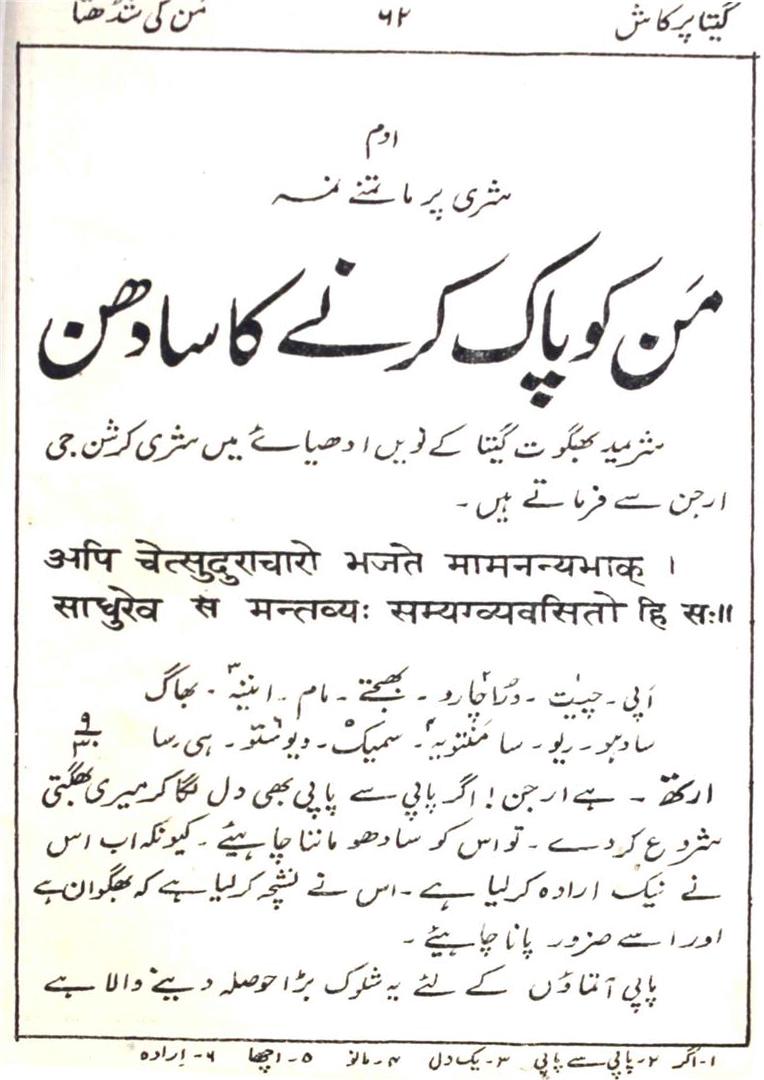 گیتا پرکاش ۶۲ مَن کی شُدّھتا
اوم
شری پرماتمنے نمہ
مَن کو پاک کرنے کا سادھن
شریمد بھگوت گیتا کے نویں ادھیائے میں شری کرشن جی
ارجن سے فرماتے ہیں۔
अपि चेत्सुदुराचारो भजते मामनन्यभाक् ।
साधुरेव स मन्तव्यः सम्यग्व्यवसितो हि सः॥
اَپی۔ چیت ۔ دراچارو ۔ بھجتے ۔ مام ۔ اننیہ۳ ۔ بھاگ
سادہو ۔ ریو ۔ سا منتویہ۴۔ سمیک۵ ۔ ویوستو۶ ۔ ہی سا ۹/۳۰
ارتھ ۔ ہے ارجن! اگر پاپی سے پاپی بھی دل لگا کر میری بھگتی
شروع کردے ۔ تو اس کو سادھو ماننا چاہیئے ۔ کیونکہ اب اس
نے نیک ارادہ کرلیا ہے ۔ اس نے نشچہ کرلیا ہے کہ بھگوان ہے
اور اسے ضرور پانا چاہیئے ۔
پاپی آتماؤں کے لئے یہ شلوک بڑا حوصلہ دینے والا ہے
۱۔ اگر ۲۔ پاپی سے پاپی ۳۔ یک دل ۴۔ مانو ۵۔ اچھا ۶۔ اِرادہ